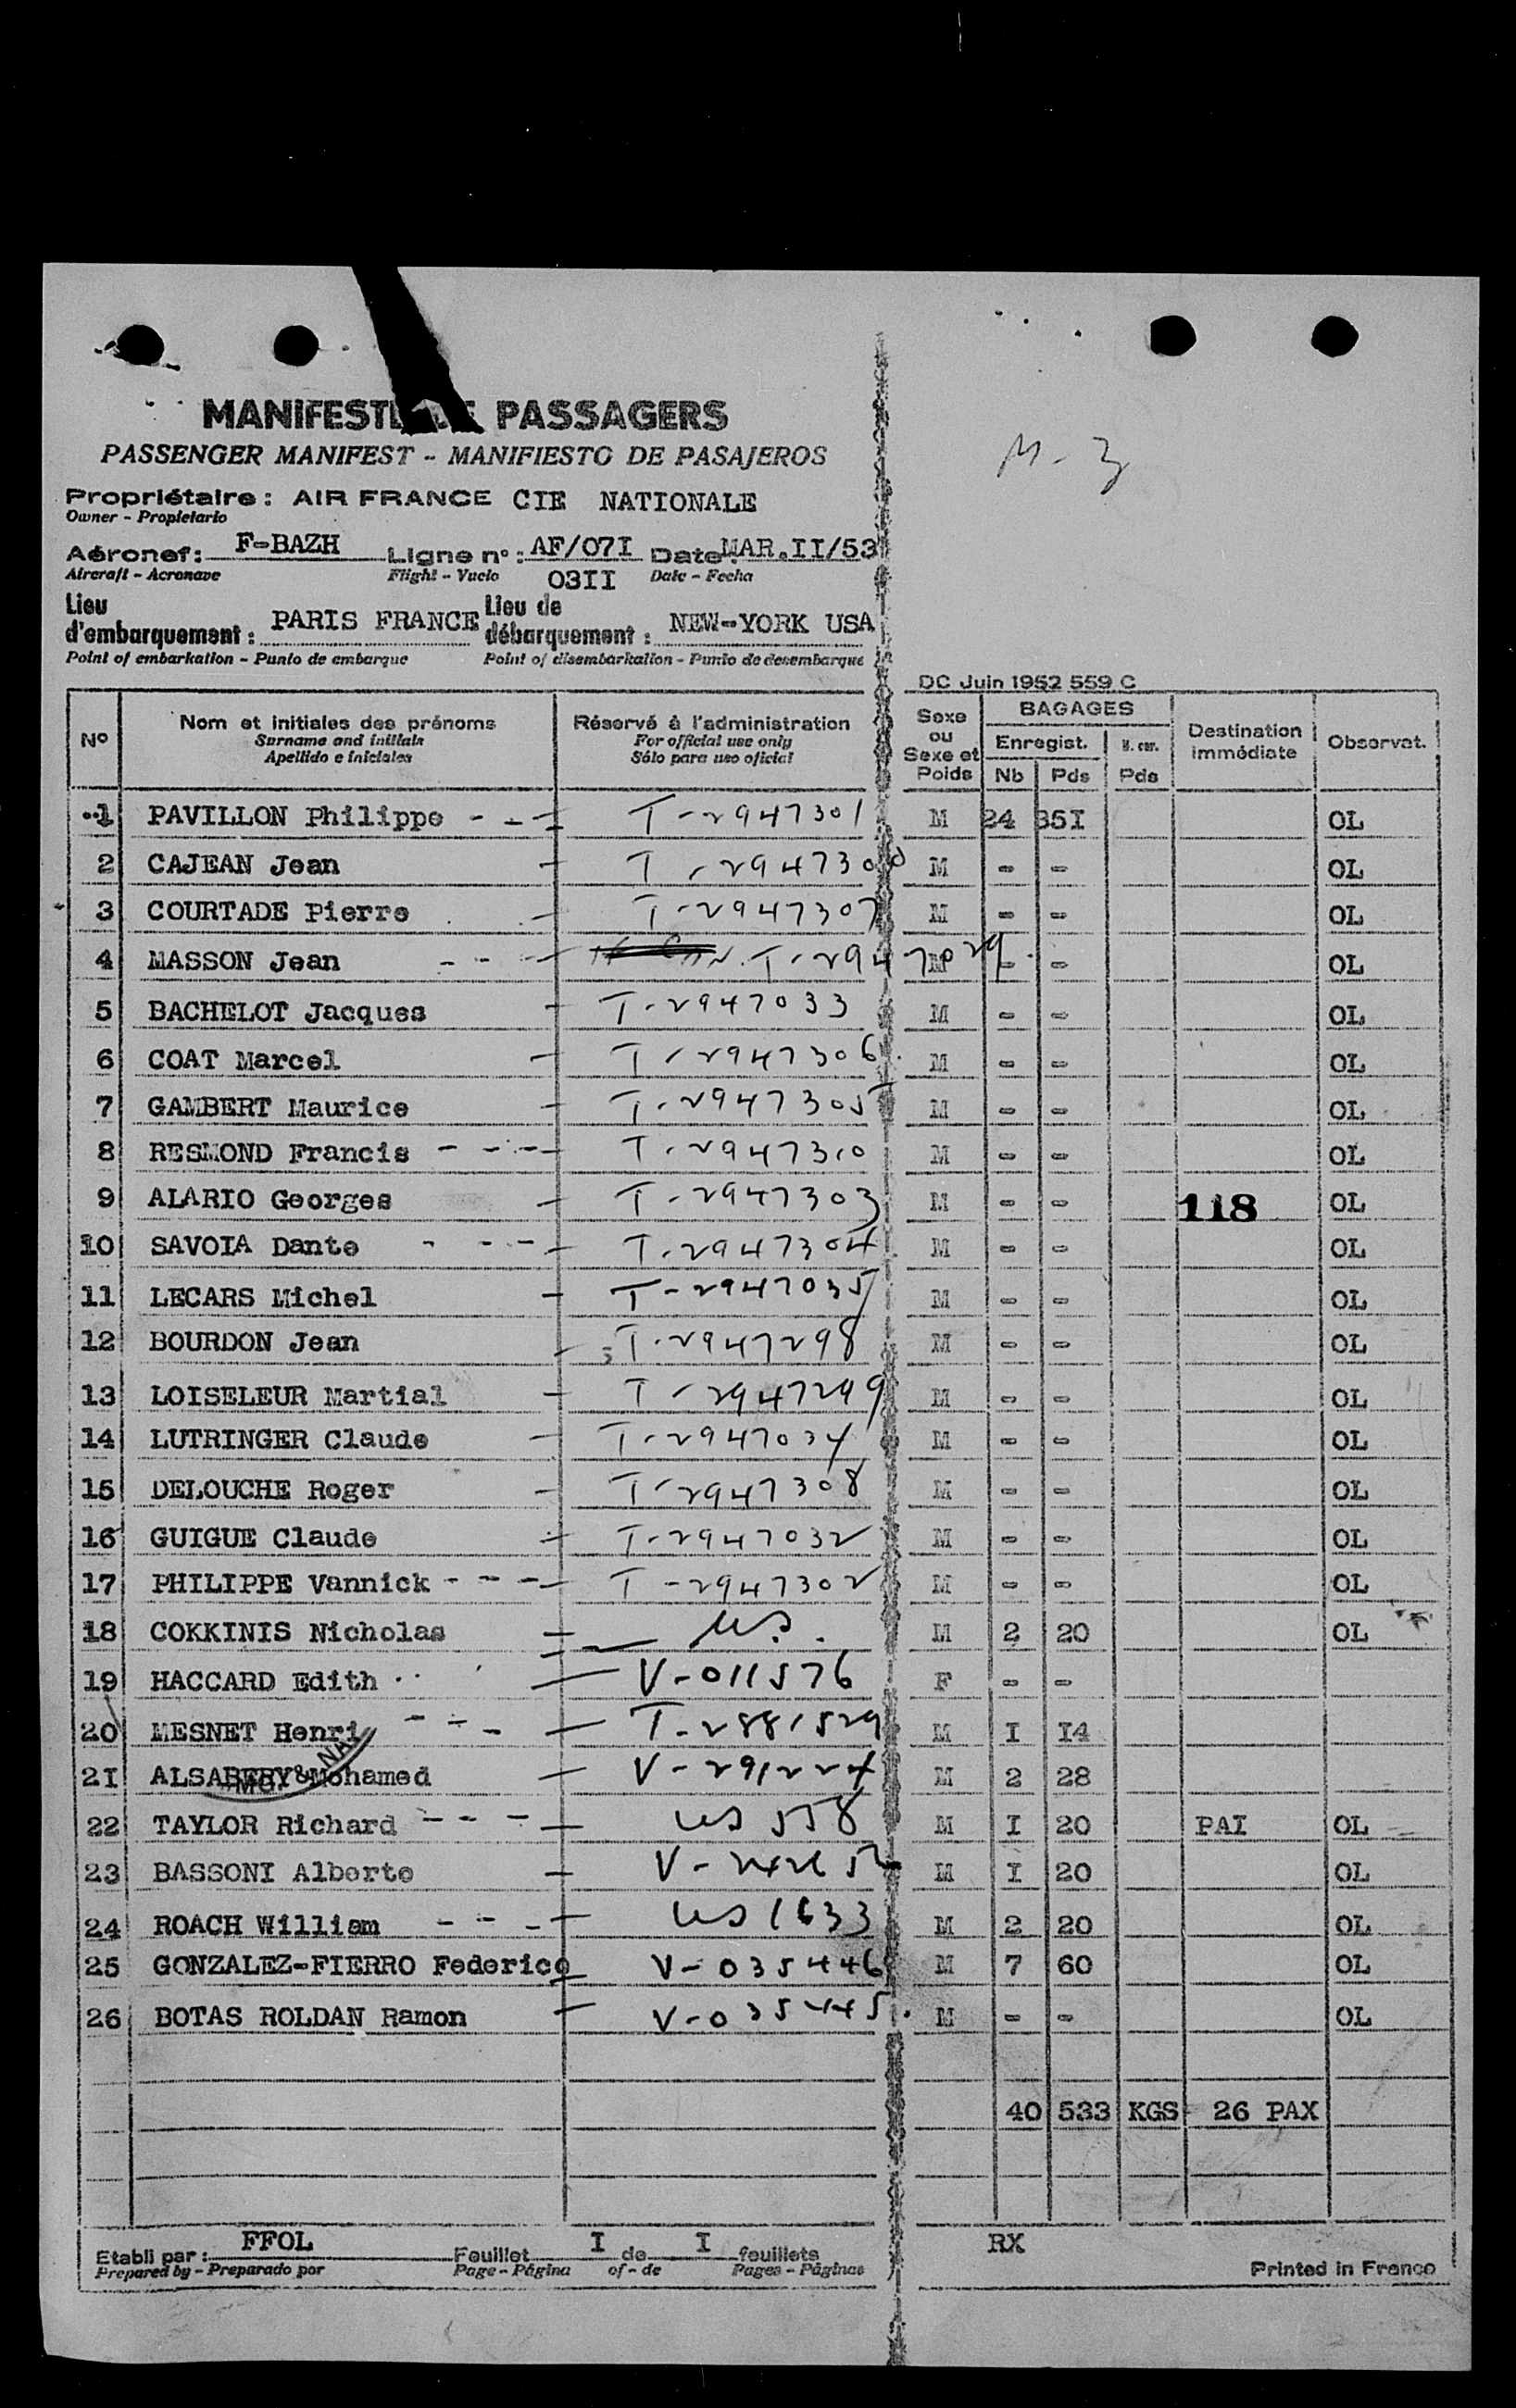 M-3
MANIFESTE DE PASSAGERS
PASSENGER MANIFEST - MANIFIESTO DE PASAJEROS
Propriétaire : AIR FRANCE CIE NATIONALE
Owner - Propietario
Aéronef : F-BAZH Ligne n° : AF/07I Date : MAR.II/53
Aircraft - Aeronave Flight - Vuelo 03II Date - Fecha
Lieu d'embarquement : PARIS FRANCE Lieu de débarquement : NEW-YORK USA
Point of embarkation - Punto de embarque Point of disembarkation - Punto de desembarque
DC Juin 1952 559 C
N° Nom et initiales des prénoms Réservé à l'administration Sexe ou Sexe et Poids BAGAGES Destination immédiate Observat.
Surname and initials For official use only Enregist. N. enr.
Apellido e iniciales Sólo para uso oficial Nb Pds Pds
1 PAVILLON Philippe - - - T-2947301 M 24 35I OL
2 CAJEAN Jean - T-2947300 M - - OL
3 COURTADE Pierre - T-2947307 M - - OL
4 MASSON Jean - - - T-2947029 M - - OL
5 BACHELOT Jacques - T-2947033 M - - OL
6 COAT Marcel - T-2947306 M - - OL
7 GAMBERT Maurice - T-2947305 M - - OL
8 RESMOND Francis - - - T-2947310 M - - OL
9 ALARIO Georges - T-2947303 M - - 118 OL
10 SAVOIA Dante - - - T-2947304 M - - OL
11 LECARS Michel - T-2947035 M - - OL
12 BOURDON Jean - T-2947298 M - - OL
13 LOISELEUR Martial - T-2947299 M - - OL
14 LUTRINGER Claude - T-2947034 M - - OL
15 DELOUCHE Roger - T-2947308 M - - OL
16 GUIGUE Claude - T-2947032 M - - OL
17 PHILIPPE Vannick - - - T-2947302 M - - OL
18 COKKINIS Nicholas - US. M 2 20 OL
19 HACCARD Edith - V-011576 F - -
20 MESNET Henri - - - T-2881529 M I I4
2I ALSABERY Mohamed - V-291224 M 2 28
22 TAYLOR Richard - - - US 558 M I 20 PAI OL
23 BASSONI Alberto - M I 20 OL
24 ROACH William - - - US 1633 M 2 20 OL
25 GONZALEZ-FIERRO Federico - V-035446 M 7 60 OL
26 BOTAS ROLDAN Ramon - V-035445. M - - OL
40 533 KGS 26 PAX
Etabli par : FFOL Feuillet I de I feuillets RX
Prepared by - Preparado por Page - Página of - de Pages - Páginas Printed in France